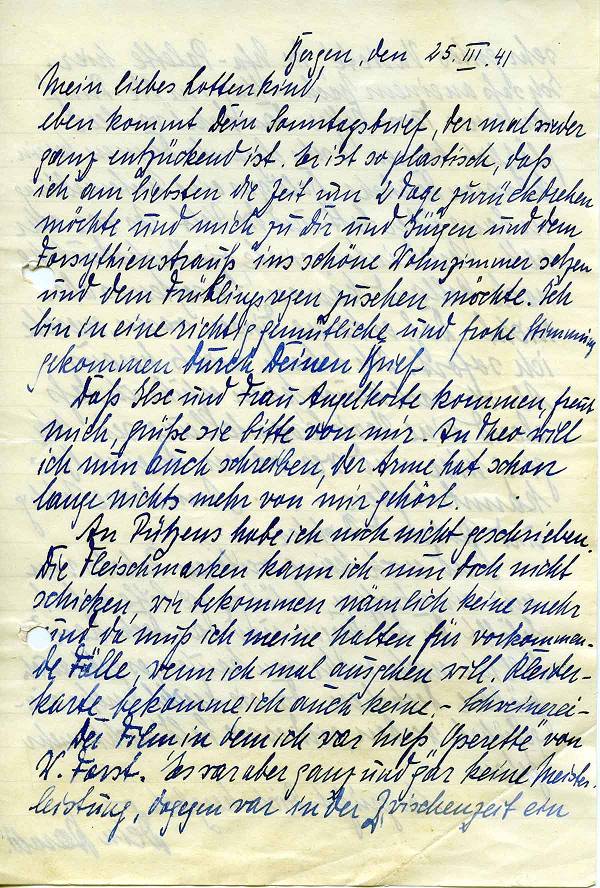 Bergen, den 25. III. 41
Mein liebes Lottenkind,
eben kommt Dein Sonntagsbrief, der mal wieder
ganz entzückend ist. Er ist so plastisch, daß
ich am liebsten die Zeit um 2 Tage zurückdrehen
möchte und mich zu Dir und Jürgen und dem
Forsythienstrauß ins schöne Wohnzimmer setzen
und dem Frühlingsregen zusehen möchte. Ich
bin in eine richtig gemütliche und frohe Stimmung
gekommen durch Deinen Brief
Daß Ilse und Frau Angelkorte kommen, freut
mich, grüße sie bitte von mir. An Theo will
ich nun auch schreiben, der Arme hat schon
lange nichts mehr von mir gehört.
An Pützens habe ich noch nicht geschrieben.
Die Fleischmarken kann ich nun doch nicht
schicken, wir bekommen nämlich keine mehr
und da muß ich meine halten für vorkommen-
de Fälle, wenn ich mal ausgehen will. Kleider-
karte bekomme ich auch keine – Schweinerei –
Der Film in dem ich war hieß „Operette" von
W. Forst. Es war aber ganz und gar keine Meister-
leistung, dagegen war in der Zwischenzeit ein